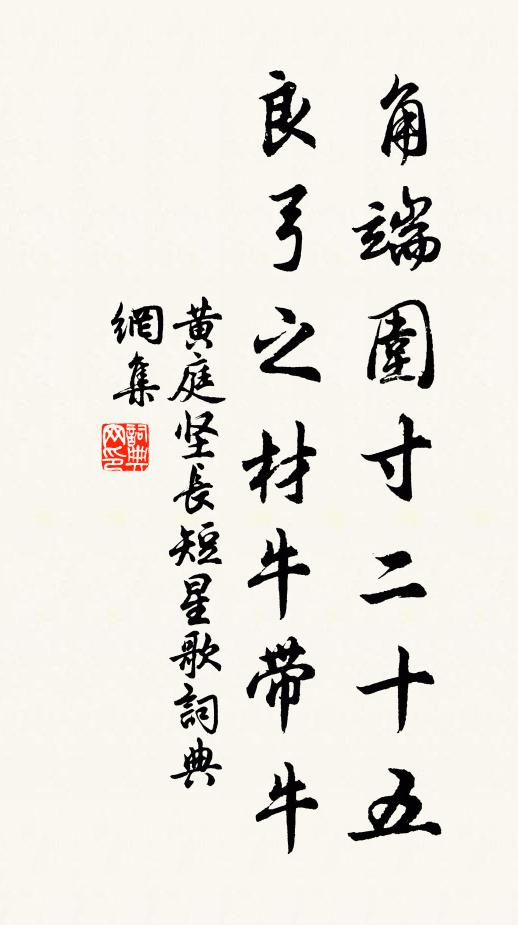 角端圍寸二十五
良弓之材牛帶牛
黄庭坚長短星歌詞典
網集
詞典網印